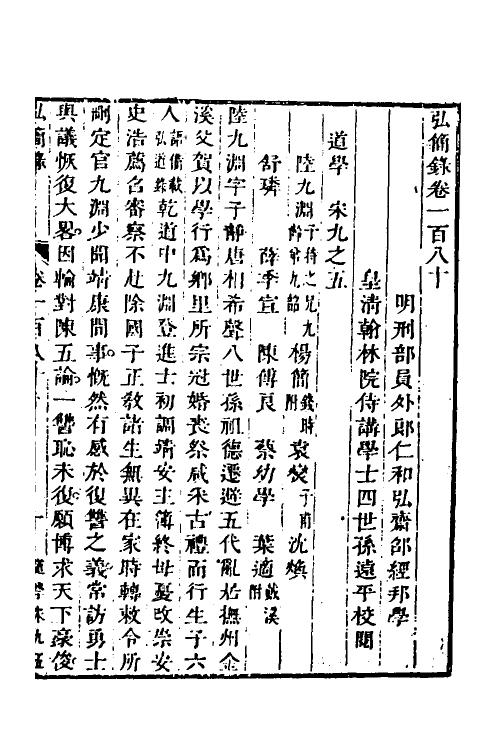 弘簡錄卷一百八十
明刑部員外郎仁和弘齋邵經邦學
皇清翰林院侍講學士四世孫遠平校閱
道學　宋九之五
陸九淵子持之兄九齡九韶　楊簡錢時附　袁燮子甫　沈煥
舒璘　薛季宣　陳傅良　蔡幼學　葉適戴溪附
陸九淵字子靜唐相希聲八世孫祖德遷避五代亂居撫州金
溪父賀以學行爲鄉里所宗冠婚喪祭咸采古禮而行生子六
人諸儁載弘道錄乾道中九淵登進士初調靖安主簿終母憂改崇安
史浩薦召審察不赴除國子正敎諸生無異在家時轉敕令所
刪定官九淵少聞靖康間事慨然有感於復讐之義常訪勇士
與議恢復大畧因輪對陳五論一讐恥未復願博求天下豪俊
弘簡錄　卷一百八十　道學宋九五